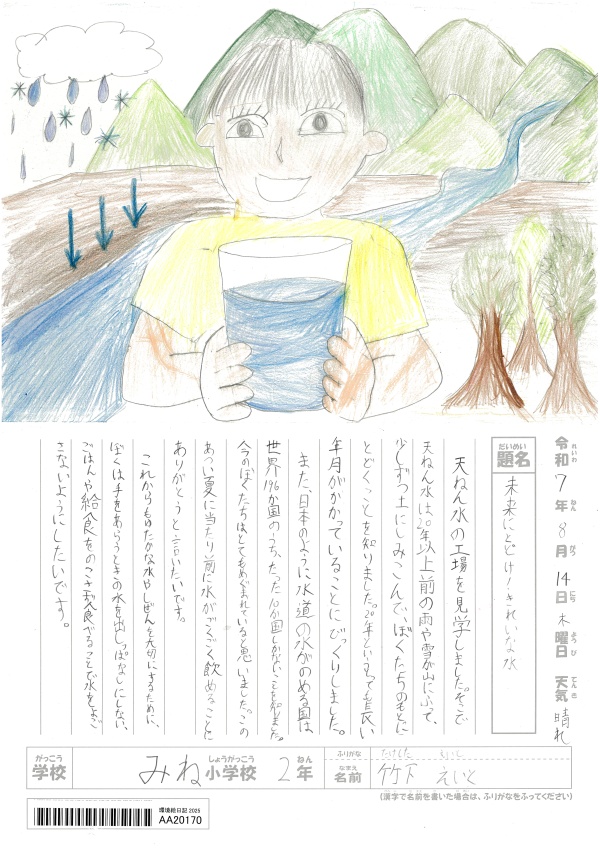 令和7年8月14日木曜日 天気 晴れ
れいわ ねん がつ にち ようび てんき
だいめい
題名 未来にとどけ!きれいな水
天ねん水の工場を見学しました。そこで
天ねん水は、20年以上前の雨や雪が山にふって、
少しずつ土にしみこんで、ぼくたちのもとに
とどくことを知りました。20年というとても長い
年月がかかっていることにびっくりしました。
また、日本のように水道の水がのめる国は、
世界196か国のうち、たった10か国しかないことを知りました。
今のぼくたちはとてもめぐまれていると思いました。この
あつい夏に当たり前に水がごくごく飲めることに
ありがとうと言いたいです。
これからもゆたかな水やしぜんを大切にするために、
ぼくは手をあらうときの水を出しっぱなしにしない、
ごはんや給食をのこさず食べることで水をよご
さないようにしたいです。
がっこう しょうがっこう ねん ふりがな たけした えいと
学校 みね小学校 2年 なまえ 名前 竹下 えいと
(漢字で名前を書いた場合は、ふりがなをふってください)
環境絵日記 2025
AA20170